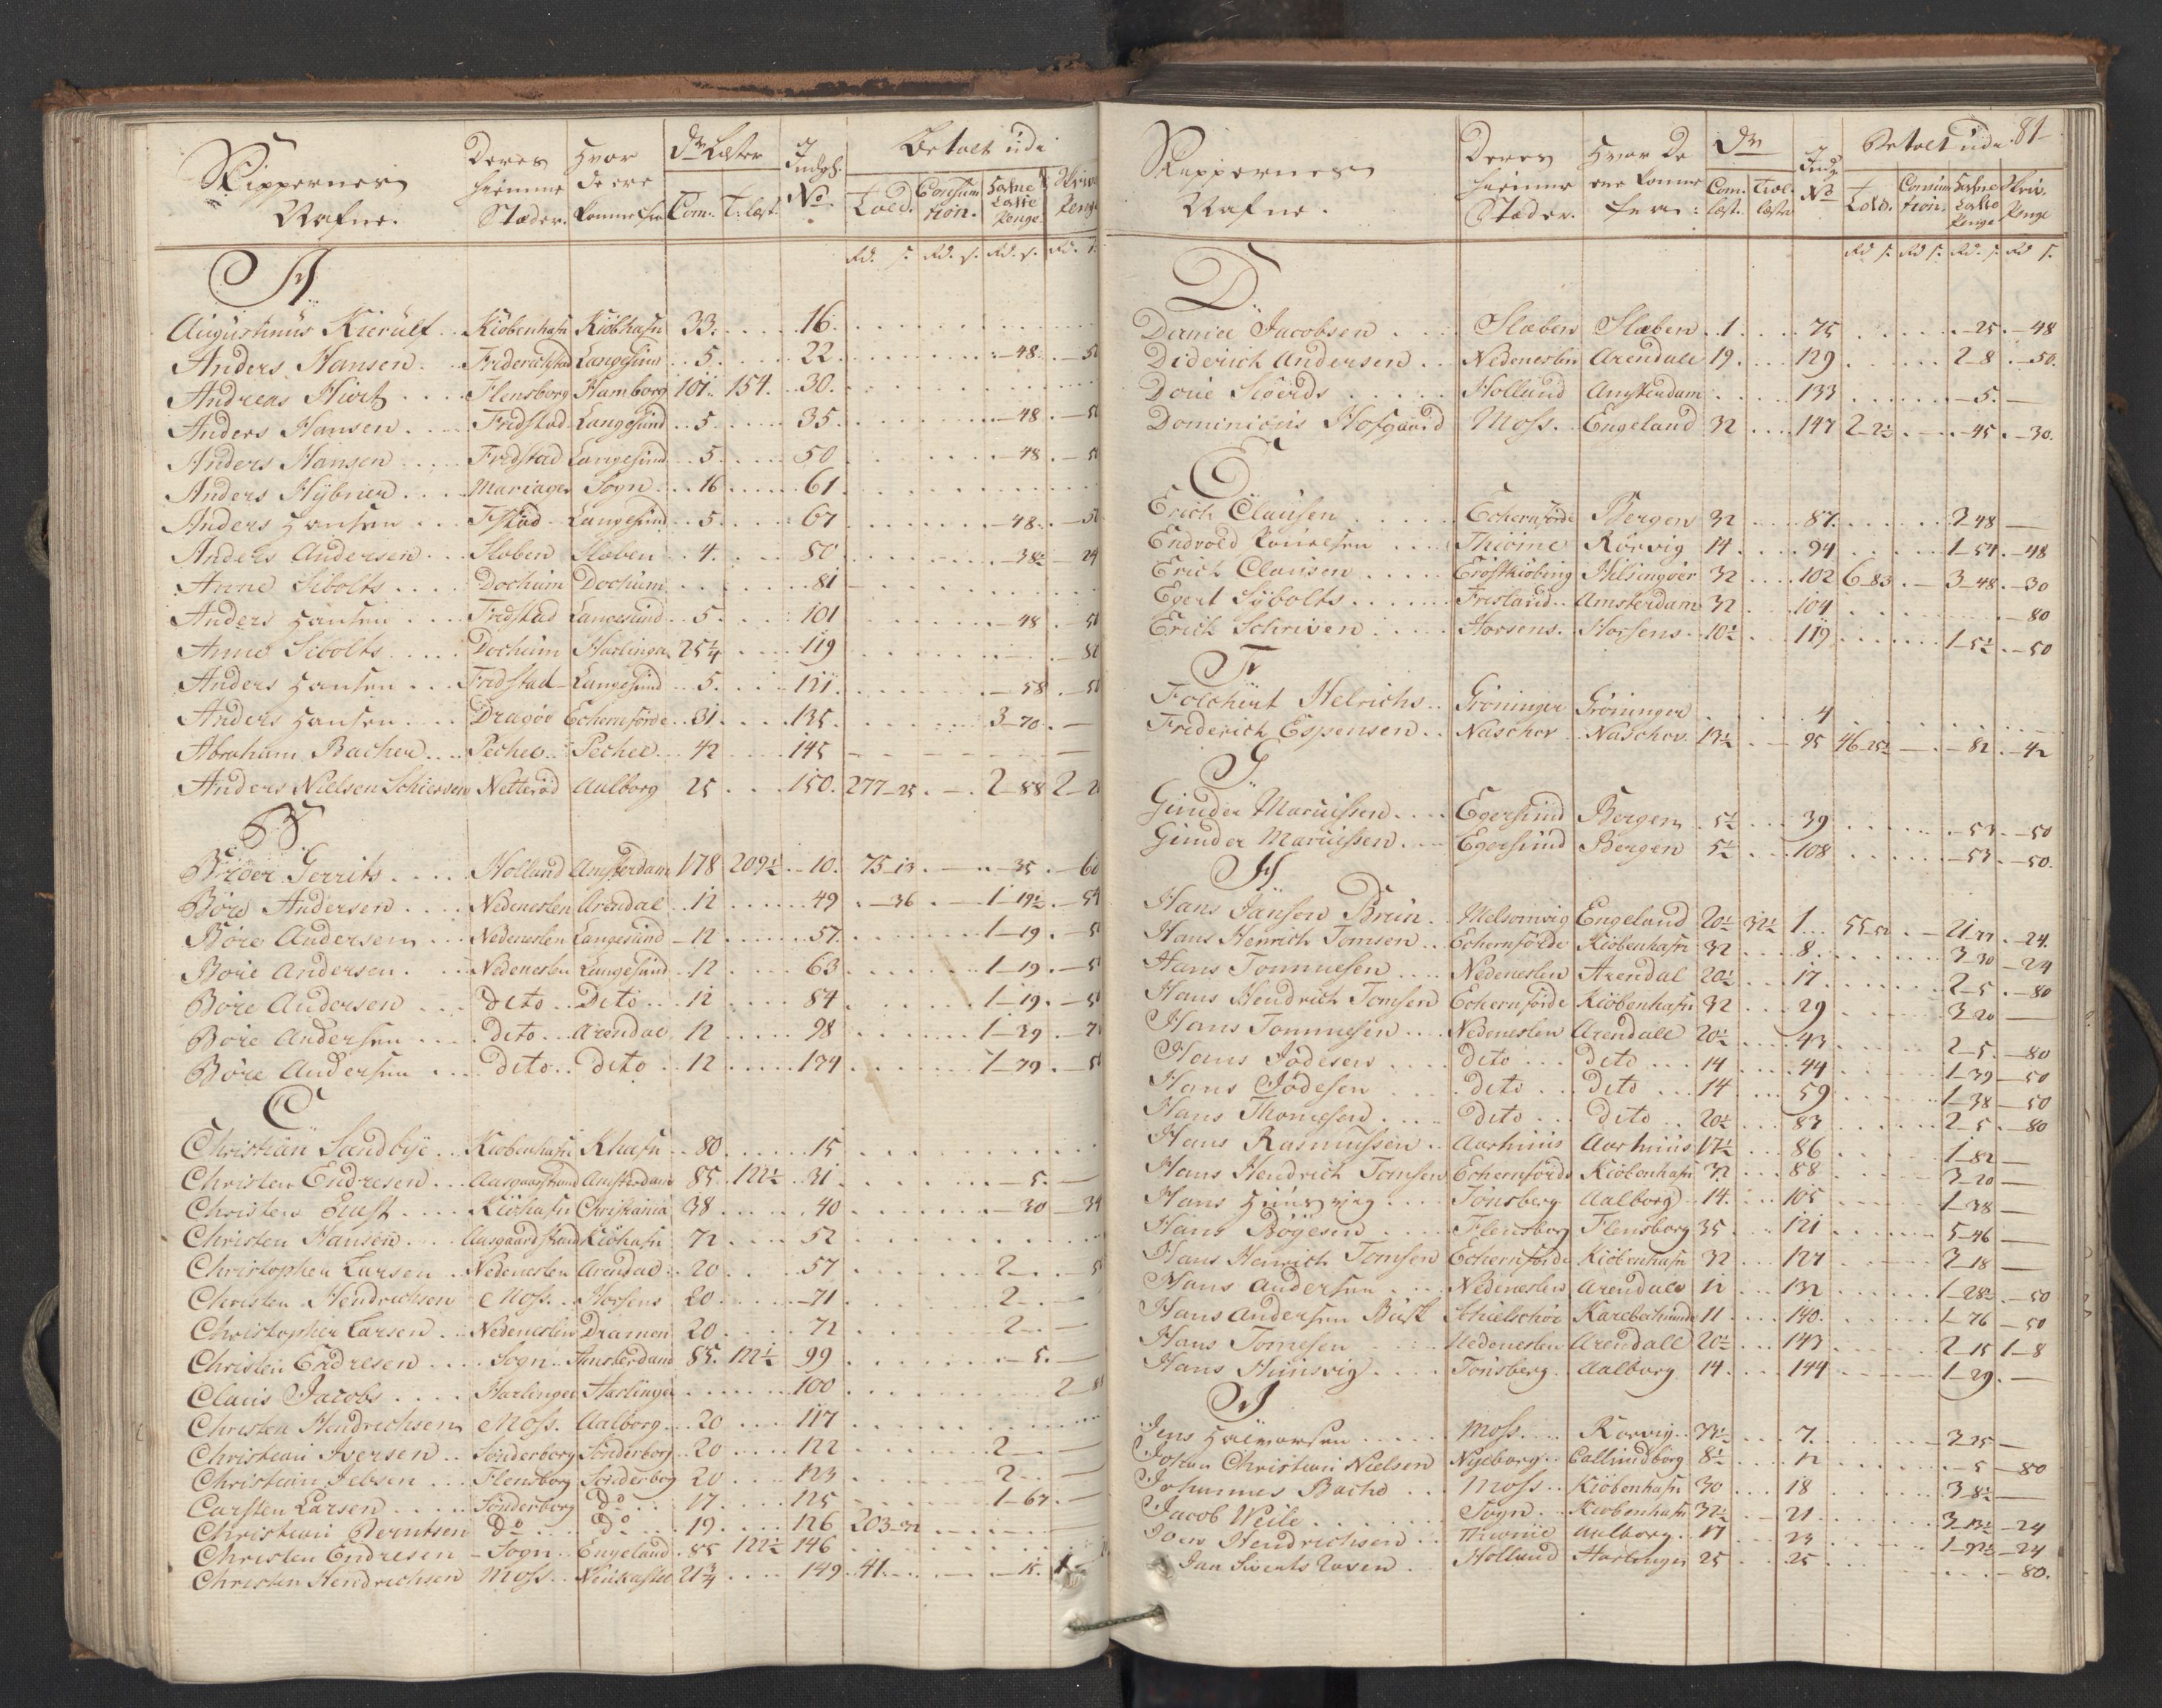 Skippernes Nafne. Deres Hiemme Stæder. Hvor de ere komne fra Dr: Læster Com: T: læst. Indgh. No Betalt udi Told. Consumtion. Havne Laste Penge Skriv Penge
Rd. s. Rd. s. Rd. s. Rd. s.
A
Augustinus Kierulf Kiobenhafn Kiobhafn 33. 16.
Anders Hansen. Friderichstad Langesund 5. 22. 48. 50
Andreas Hiort Flensborg Hamborg 101. 154. 30.
Anders Hansen. Fridstad Langesund 5. 35. 48 50
Anders Hansen Fridstad Langesund 5. 50 48 50
Anders Hÿbner Mariager Sogn 16 61
Anders Hansen Fstad Langesund 5. 67 48. 50
Anders Andersen Slæben Slæben 4. 50 38½ 24
Anne Sibolts Dochum Dochum 81
Anders Hansen Fridstad Langesund 5. 101 48 50
Anne Sibolts Dochum Harlingen 25¼ 119
Anders Hansen Fridstad Langesund 5. 121. 58 50
Anders Hansen Dragöe Echernförde 31. 135. 3-70.
Abraham Bacher Pechel Pechel 42 145
Anders Nielsen Netteröd Aalborg 25 150. 277-25. 2-88 2-
B
Broer Gerrits Holland Amsterdam 178 209½ 10. 75-13 35
Böre Andersen Nedeneslen Arendal 12 49 36 1-19½ 54
Böre Andersen Nedeneslen Langesund 12 57. 1-19
Böre Andersen. Nedeneslen Langesund 12 63 1-19
Böre Andersen Dito Dito 12 84 1-19
Böre Andersen Dito Arendal 12 98 1-39
Böre Andersen Dito Dito 12 134 1-39
C
Christian Sandbÿe Kiobenhafn Khafn 80 15
Christen Endresen Aasgaardstrand Amsterdam 85. 122½ 31 5.
Christen Kiöhafn Christiania 38 40 30 34
Christen Hansen Aasgaardstrand Kiöhafn 72 52
Christopher Larsen Nedeneslen Arendal 20 57 2
Christen Hendrichsen Moss. Horsens 20 71 2
Christopher Larsen Nedeneslen Dramen 20 72 2
Christen Endresen Sogn Amsterdam 85. 122½ 99 5.
Claus Jacobs Harlingen Harlingen 100 2
Christen Hendrichsen Moss. Aalborg. 20 117
Christian Iversen Sönderborg Sönderborg 20 122 2
Christian Jebsen Flensborg Sönderborg 20 123 2
Carsten Larsen Sönderborg Do 17. 125 1-67.
Christian Berntsen Do Do 19. 126 203-32
Christen Endresen Sogn Engeland. 85 122½ 146
Christen Hendrichsen Moss 21¾ 149 41. 15.
81
Skippernes Nafne. Deres Hiemme Stæder. Hvor De ere komne fra: Dr Com. læst. Træl. læster Indg No Betalt udi Told. Consumtion. Havne Laste Penge Skriv. Penge
Rd s. Rd s. Rd. s. Rd s.
D
Daniel Jacobsen Slæben Slæben 1. 75 25. 48
Diderich Andersen Nedeneslen Arendall 19. 129 2-8 50.
Doue Siöerds Holland Amsterdam 133 5.
Dominicus Hofgaard Moss. Engeland 32 147 2-2½ 45. 30.
E
Erich Clausen Echernförde Bergen 32 87. 3 48
Endvold Thiöme Rörvig 14 94 1-54. 48
Erich Clausen Eröeskiöbing Helsingöer 32 102 6-83 3-48. 30
Egert Sÿbolts Frisland Amsterdam 32 104 80
Erich Schriven Horsens. Horsens 10½ 119 1-5½ 50
F
Folchert Helrichs Gröningen Gröningen 4
Friderich Espensen Naschov Naschov 13½ 95 46-25½ 82. 42
G
Gunder Maruissen Egersund Bergen 5½ 39 53 50
Gunder Maruissen Egersund Bergen 5½ 108 53. 50.
H
Hans Jansen Brun Melsomvig Engeland 20½ 32½ 1 55-52 24.
Hans Henrich Tomsen Echernförde Kiöbenhafn 32 8. 3 30 24
Hans Tommesen Nedeneslen Arendal 20½ 17. 2-5. 80
Hans Hendrich Tomsen Echernförde Kiöbenhafn 32 29 3 20
Hans Tommesen Nedeneslen Arendall 20½ 43 2-5. 80
Hans Jödesen Dito Dito 14 44 1-39 50
Hans Jödesen Dito Dito 14 59 1-38 50
Hans Thomesen Dito Dito 20½ 83 2-5. 80
Hans Rasmussen Aarhuus Aarhuus 17½ 86 1-82
Hans Hendrich Tomsen Echernförde Kiöbenhafn 32 88 3-20
Hans Tönsberg Aalborg 14. 105 1-38
Hans Böÿesen Flensborg Flensborg 35 121 5-46
Hans Henrich Tomsen Echernförde Kiöbenhafn 32 127 3 18
Hans Andersen Nedeneslen Arendall 12 132 1-28½ 50
Hans Andersen Busk Schielschör 11 140. 1-76 50
Hans Tomesen Nedeneslen Arendall 20½ 143 2 15 1-8
Hans Huusvig Tonsberg Aalborg 14. 144 1-29.
J
Jens Halvorsen Moss Rorvig 33½ 7. 3 35
Johan Christian Nielsen Nÿeborg Callundborg 8½ 12 5 80
Johannes Bache Moss Kiöbenhafn 30 18 3-8½
Jacob Weile Sogn Kiobenhafn 32½ 21 3-13½ 24
Jöen Hendrichsen Aalborg 17 23 1-92½ 24
Jan Holland Harlingen 25 25 80.